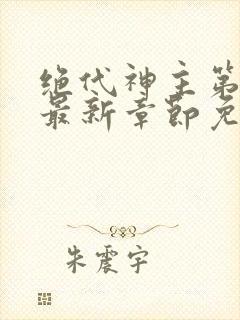 绝代神主第
最新章节免
朱震宇